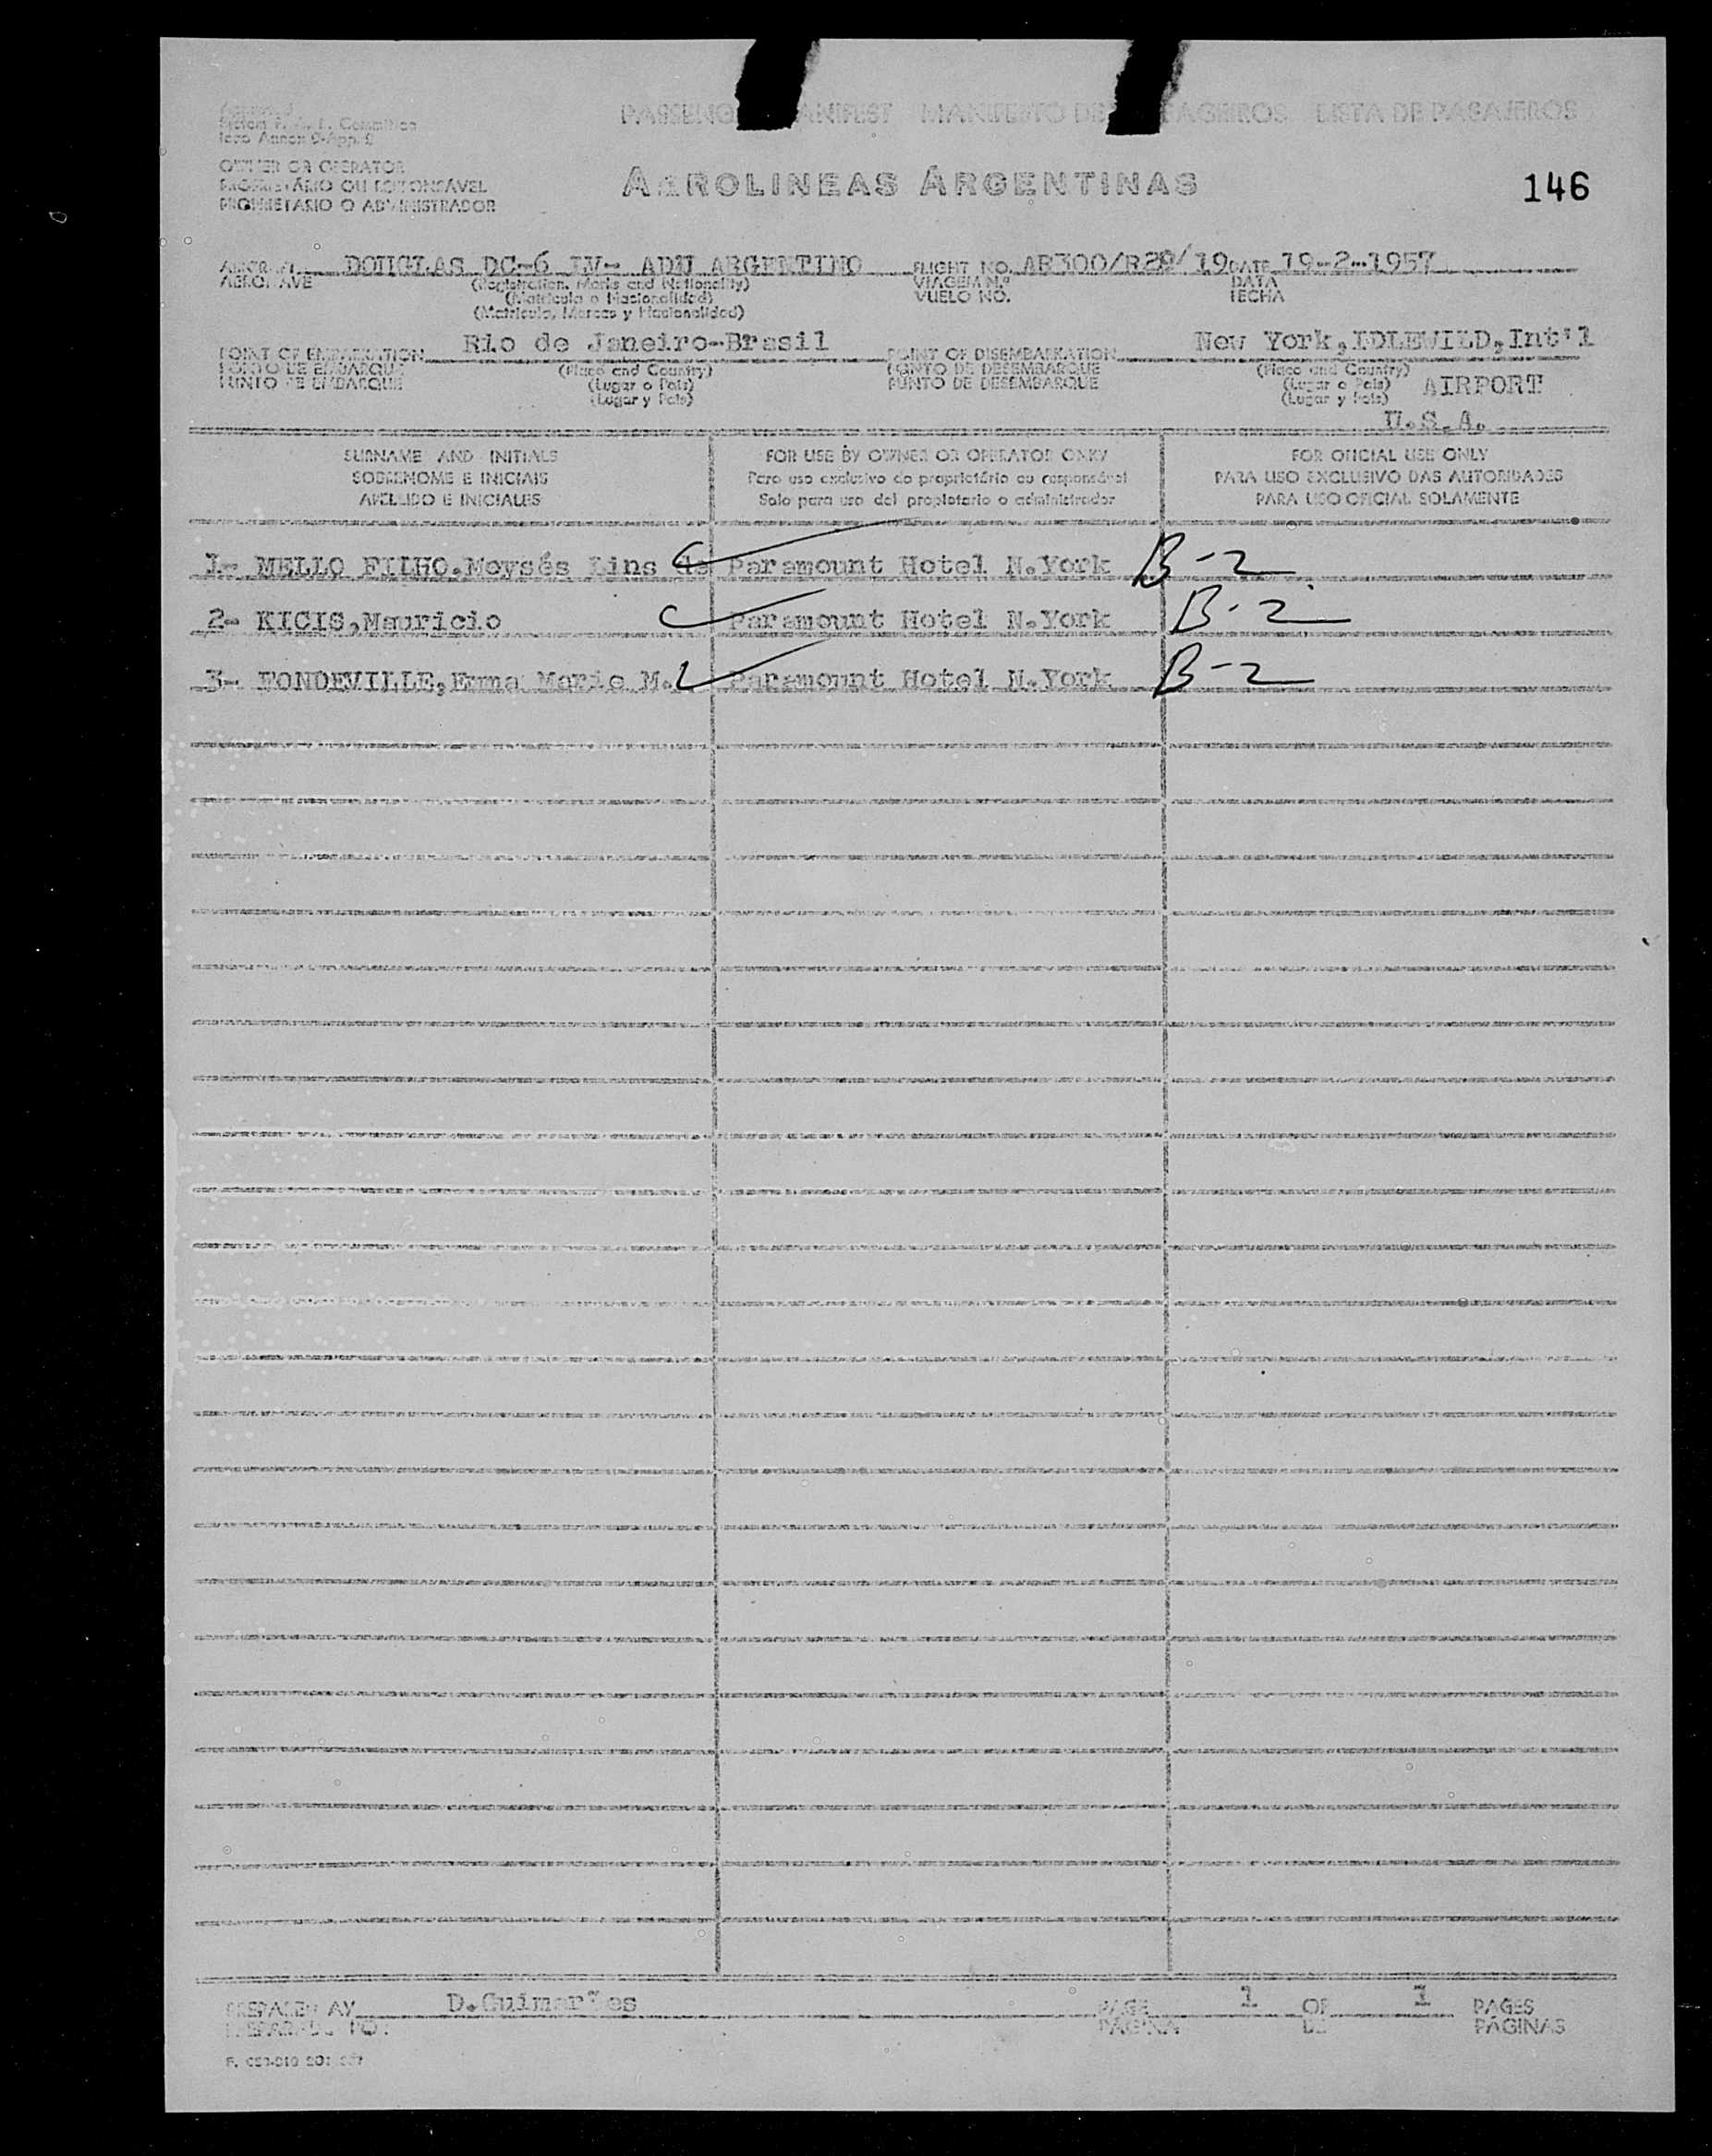 PASSENG ANIFEST MANIFESTO DE AGEIROS LISTA DE PASAJEROS
Annex 9-App. 2
OWNER OR OPERATOR
PROPRIETÁRIO OU RESPONSÁVEL
PROPRIETARIO O ADMINISTRADOR
AEROLINEAS ARGENTINAS
146
AIRCRAFT DOUGLAS DC-6 LV- ADU ARGENTINO FLIGHT NO. AR300/R20/19 DATE 19-2-1957
AERONAVE (Registration, Marks and Nationality) VIAGEM N.º DATA
(Matrícula e Nacionalidad) VUELO NO. FECHA
(Matrícula, Marcas y Nacionalidad)
POINT OF EMBARKATION Rio de Janeiro-Brasil POINT OF DISEMBARKATION New York,IDLEWILD,Int'l
PONTO DE EMBARQUE (Place and Country) PONTO DE DESEMBARQUE (Place and Country)
PUNTO DE EMBARQUE (Lugar o País) PUNTO DE DESEMBARQUE (Lugar o País) AIRPORT
(Lugar y País) (Lugar y País)
U.S.A.
SURNAME AND INITIALS FOR USE BY OWNER OR OPERATOR ONLY FOR OFICIAL USE ONLY
SOBRENOME E INICIAIS Para uso exclusivo do proprietário ou responsável PARA USO EXCLUSIVO DAS AUTORIDADES
APELLIDO E INICIALES Solo para uso del propietario o administrador PARA USO OFICIAL SOLAMENTE
1- MELLO FILHO.Moysés Lins de Paramount Hotel N.York B-2
2- KICIS,Mauricio Paramount Hotel N.York B-2
3- FONDEVILLE,Emma Marie M. Paramount Hotel N.York B-2
PREPARED AY D.Guimarães PAGE 1 OF 1 PAGES
PREPARADO POR PÁGINA DE PÁGINAS